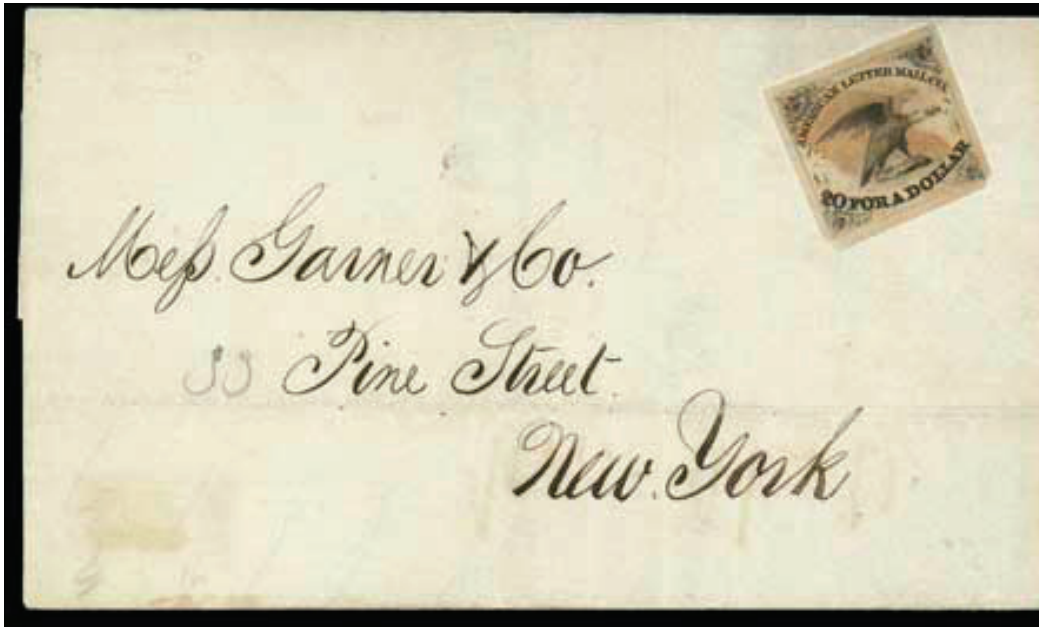 AMERICAN LETTER MAIL CO.
20 FOR A DOLLAR
Meſs. Garner & Co.
33 Pine Street.
New York